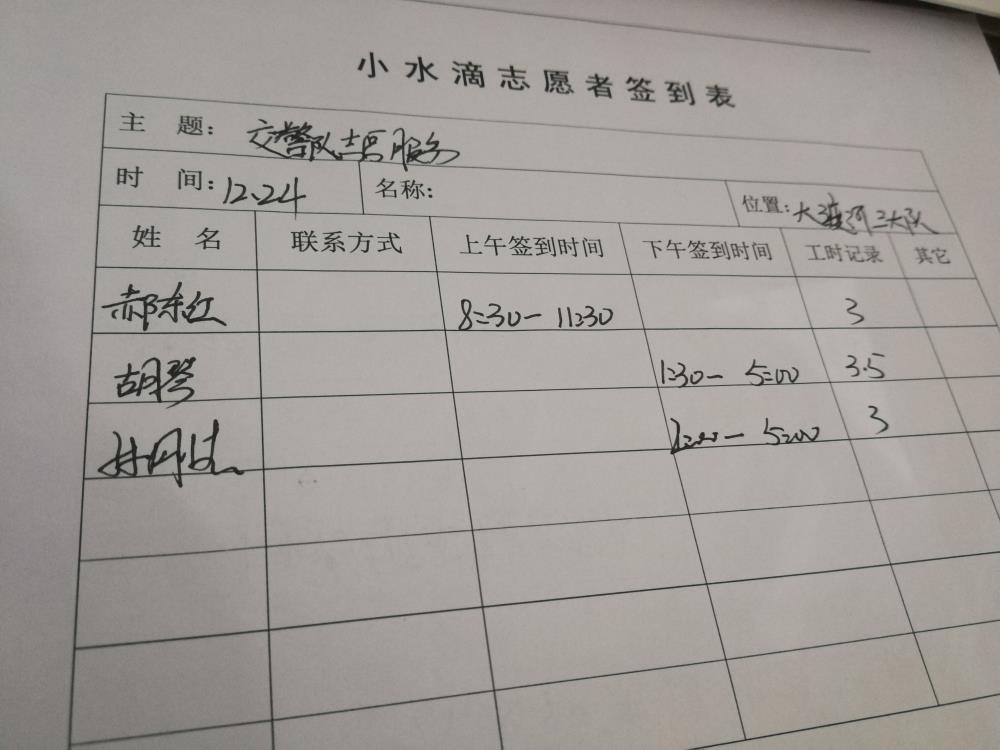 小水滴志愿者签到表
主 题: 交警队志愿服务
时 间: 12.24 名称: 位置: 大渡河三大队
姓 名 联系方式 上午签到时间 下午签到时间 工时记录 其它
郝东红 8:30- 11:30 3
胡琴 1:30- 5:00 3.5
林丹 2:00- 5:00 3